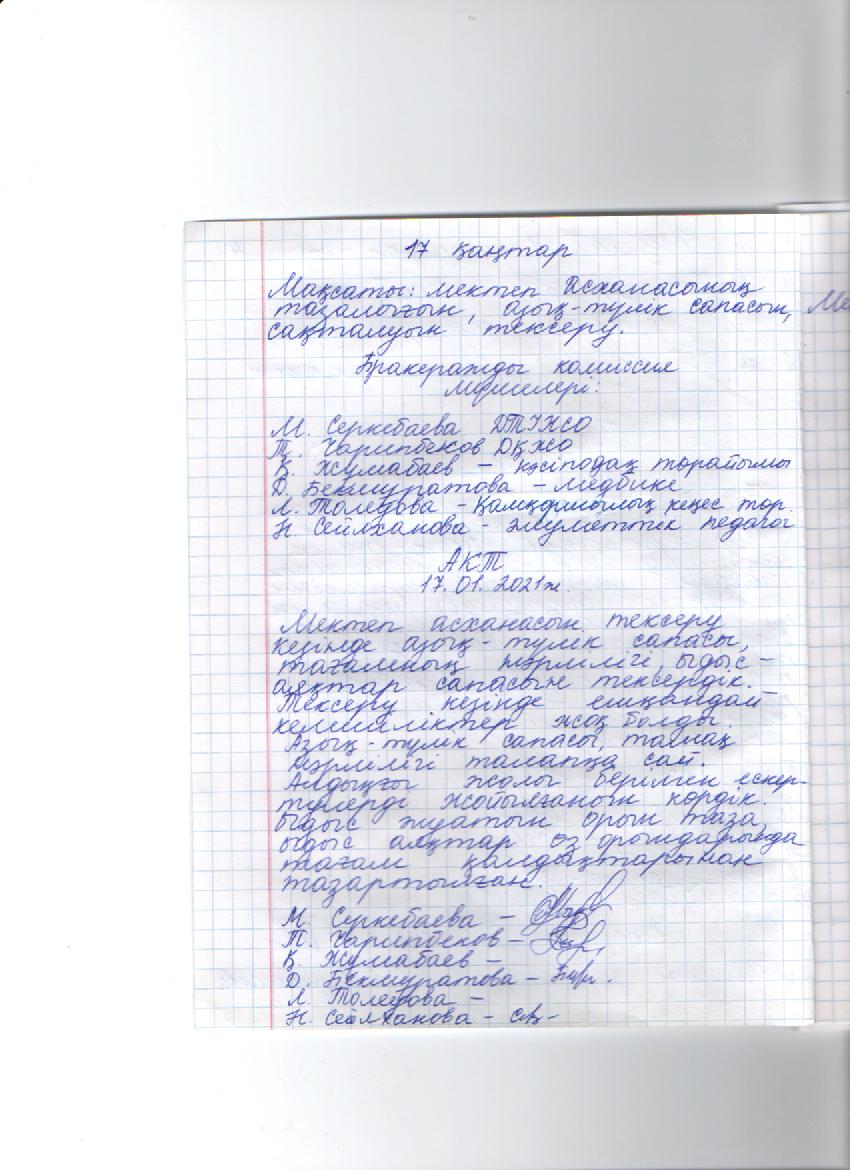 17 қаңтар
Мақсаты: мектеп асханасының
тазалығын, азық-түлік сапасын,
сақталуын тексеру.
Бракеражды комиссия
мүшелері:
М. Серкебаева ДТІЖО
Т. Чарипбеков ДҚЖО
Қ. Жумабаев – кәсіподақ төрайымы
Д. Бекмуратова – медбике
Л. Толеуова – Қамқоршылық кеңес төр.
Н. Сейлханова – әлуметтік педагог
АКТ
17.01.2021ж.
Мектеп асханасын тексеру
кезінде азық-түлік сапасы,
тағамның нәрлілігі, ыдыс-
аяқтар сапасын тексердік.
Тексеру кезінде ешқандай
кемшіліктер жоқ болды.
Азық-түлік сапасы, тамақ
нәрлілігі талапқа сай.
Алдыңғы жолы берілген ескер-
тулерді жойылғанын көрдік.
Ыдыс жуатын орын таза,
ыдыс аяқтар өз орындарында
тағам қалдықтарынан
тазартылған.
М. Серкебаева –
Т. Чарипбеков –
Қ. Жумабаев –
Д. Бекмуратова –
Л. Толеуова –
Н. Сейлханова –
Ме